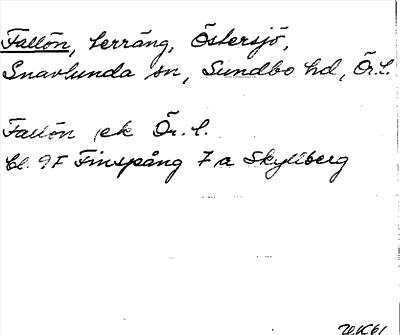 Fallön, terräng, Östersjö,
Snavlunda sn, Sundbo hd, Ör.l.
Fallön ek Ör.l.
Bl. 9F Finspång 7a Skyllberg